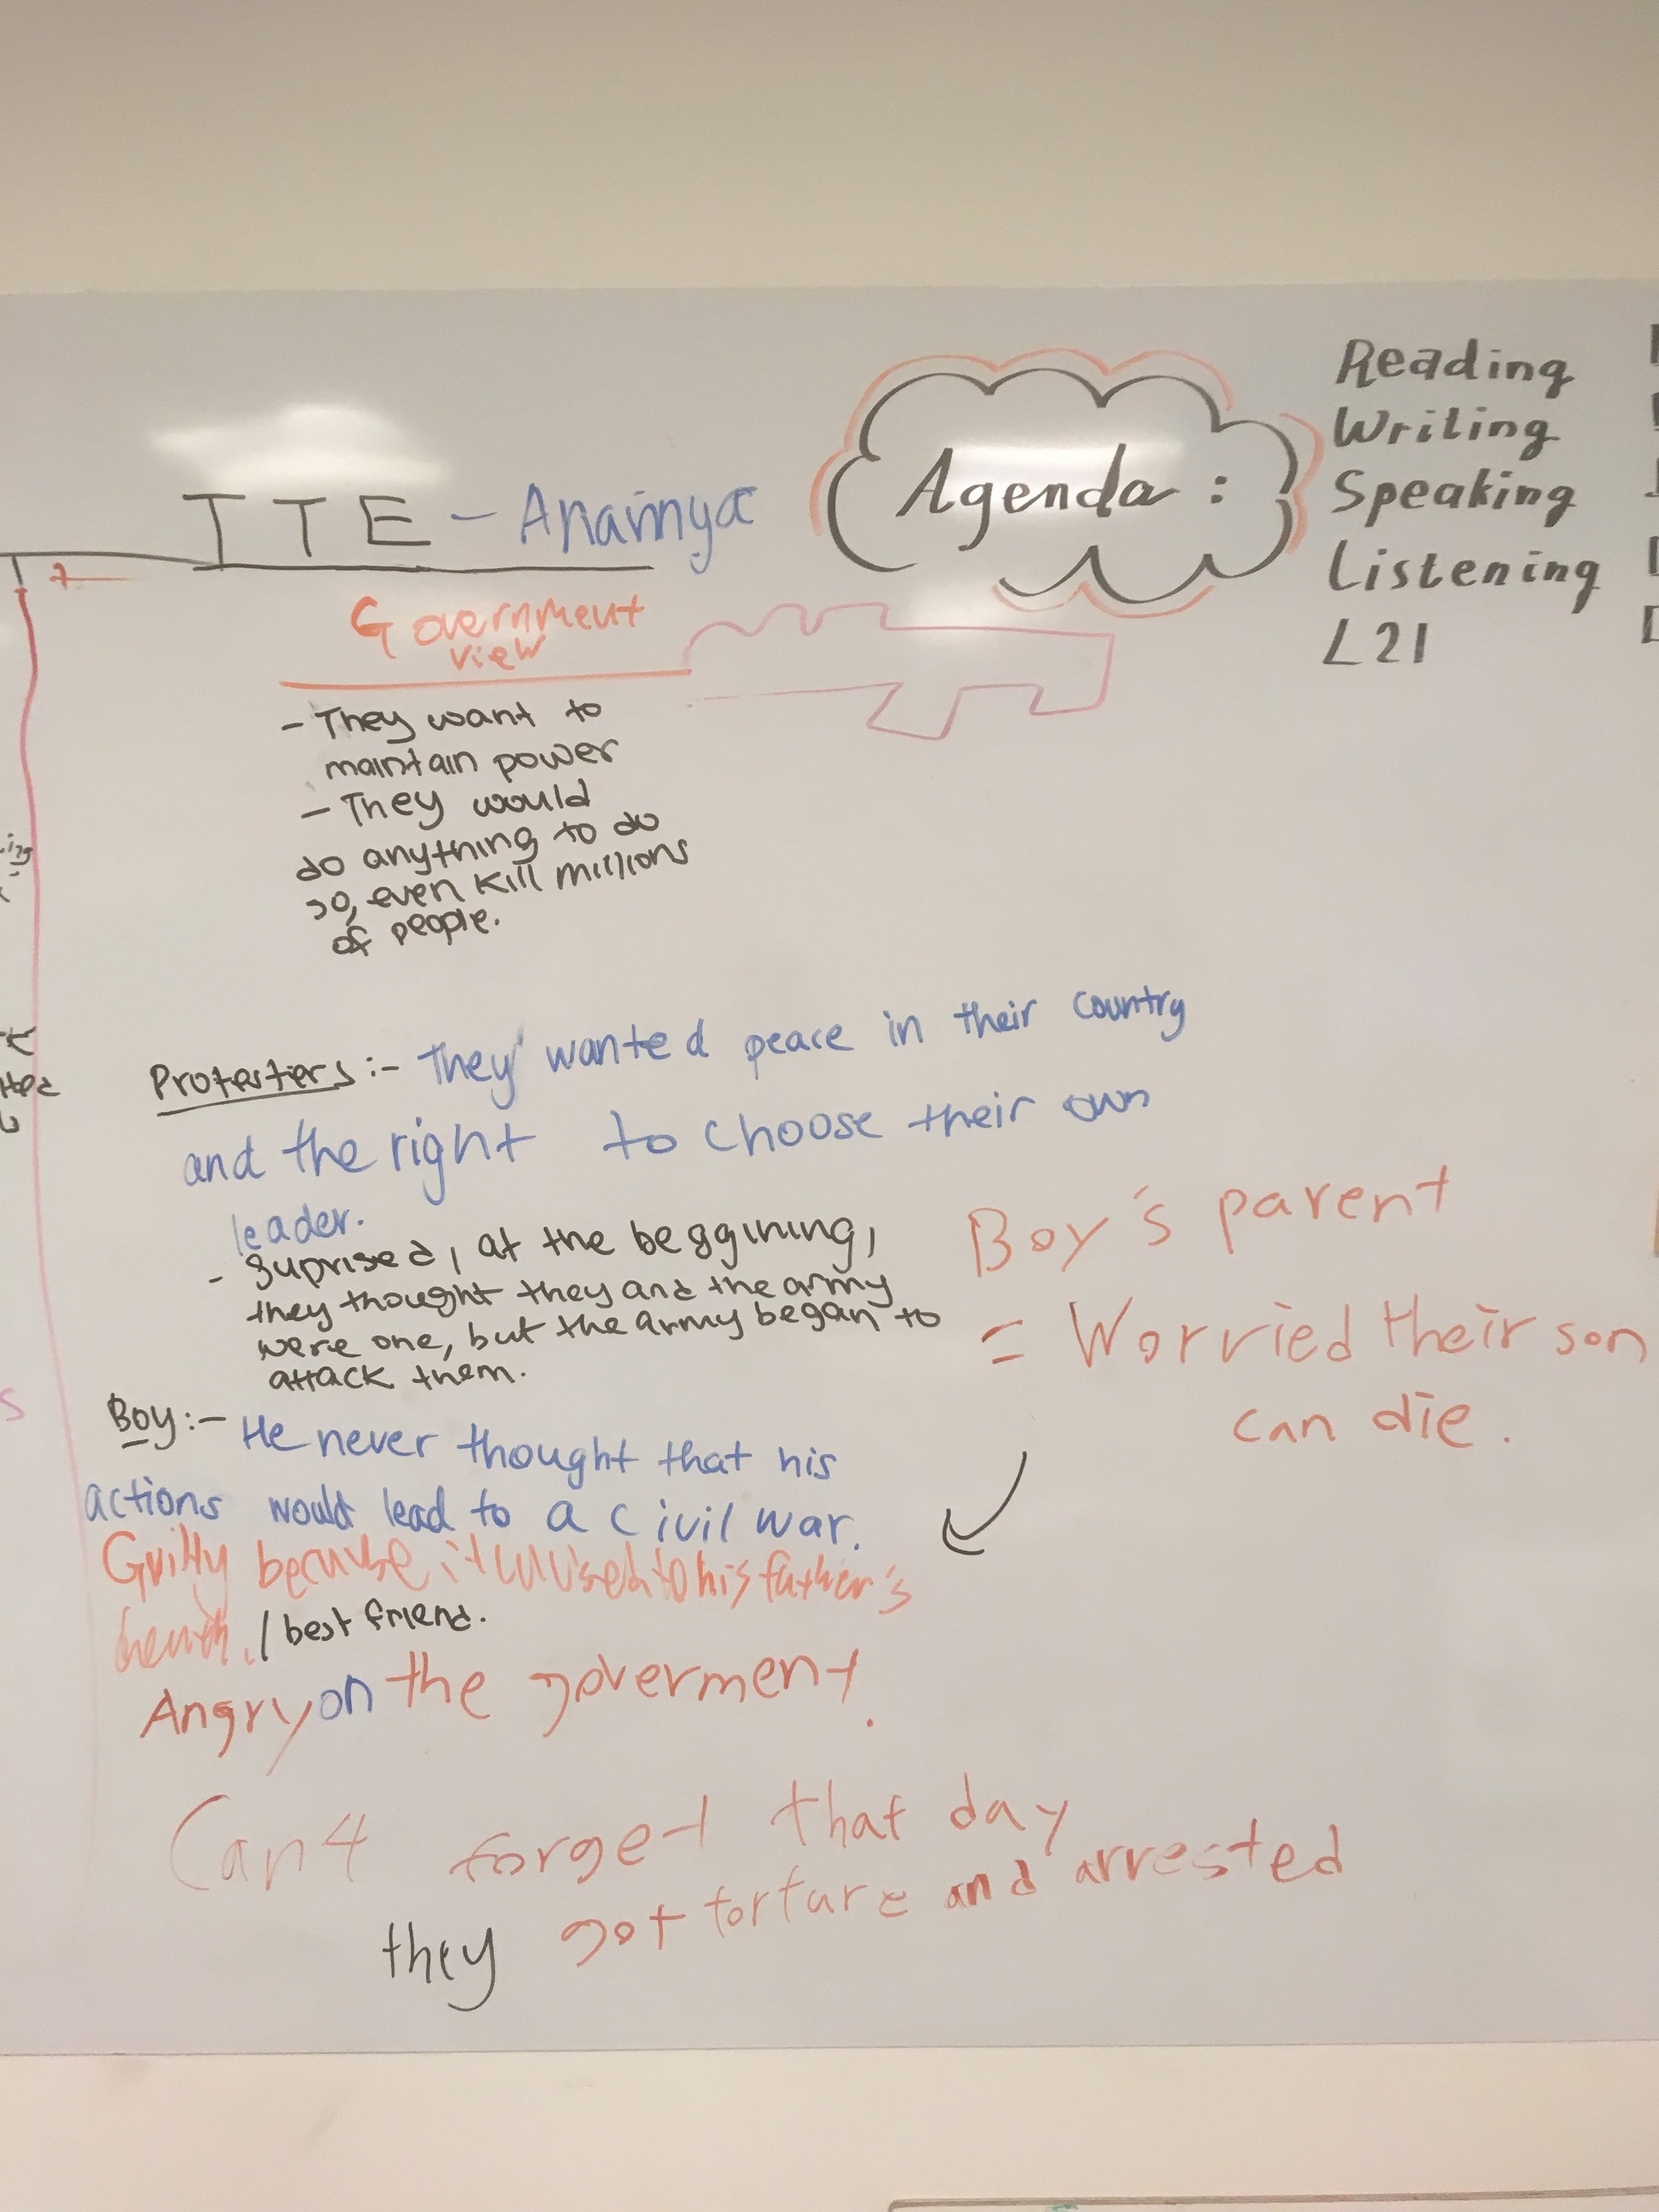 TTE - Anainya
Agenda :
Reading
Writing
Speaking
Listening
L21
Government
view
- They want to
maintain power
- They would
do anything to do
so, even kill millions
of people.
Protestiers :- They wanted peace in their country
and the right to choose their own
leader.
- Suprised, at the beggining,
they thought they and the army
were one, but the army began to
attack them.
Boy's parent
= Worried their son
can die.
Boy :- He never thought that his
actions would lead to a civil war.
Guilty because it to his father's
/ best friend.
Angry on the goverment.
Can4 forget that day
they got torture and arrested